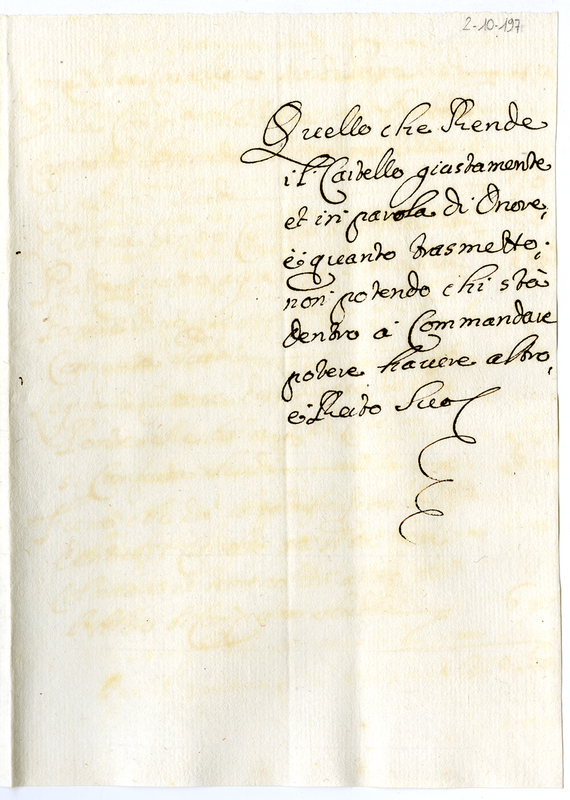 2-10-197
Quello che Rende
il Castello giustamente
et in parola di Onore,
è quanto trasmetto;
non potendo chi stà
dentro a Commandare
potere havere altro,
e Resto Suo